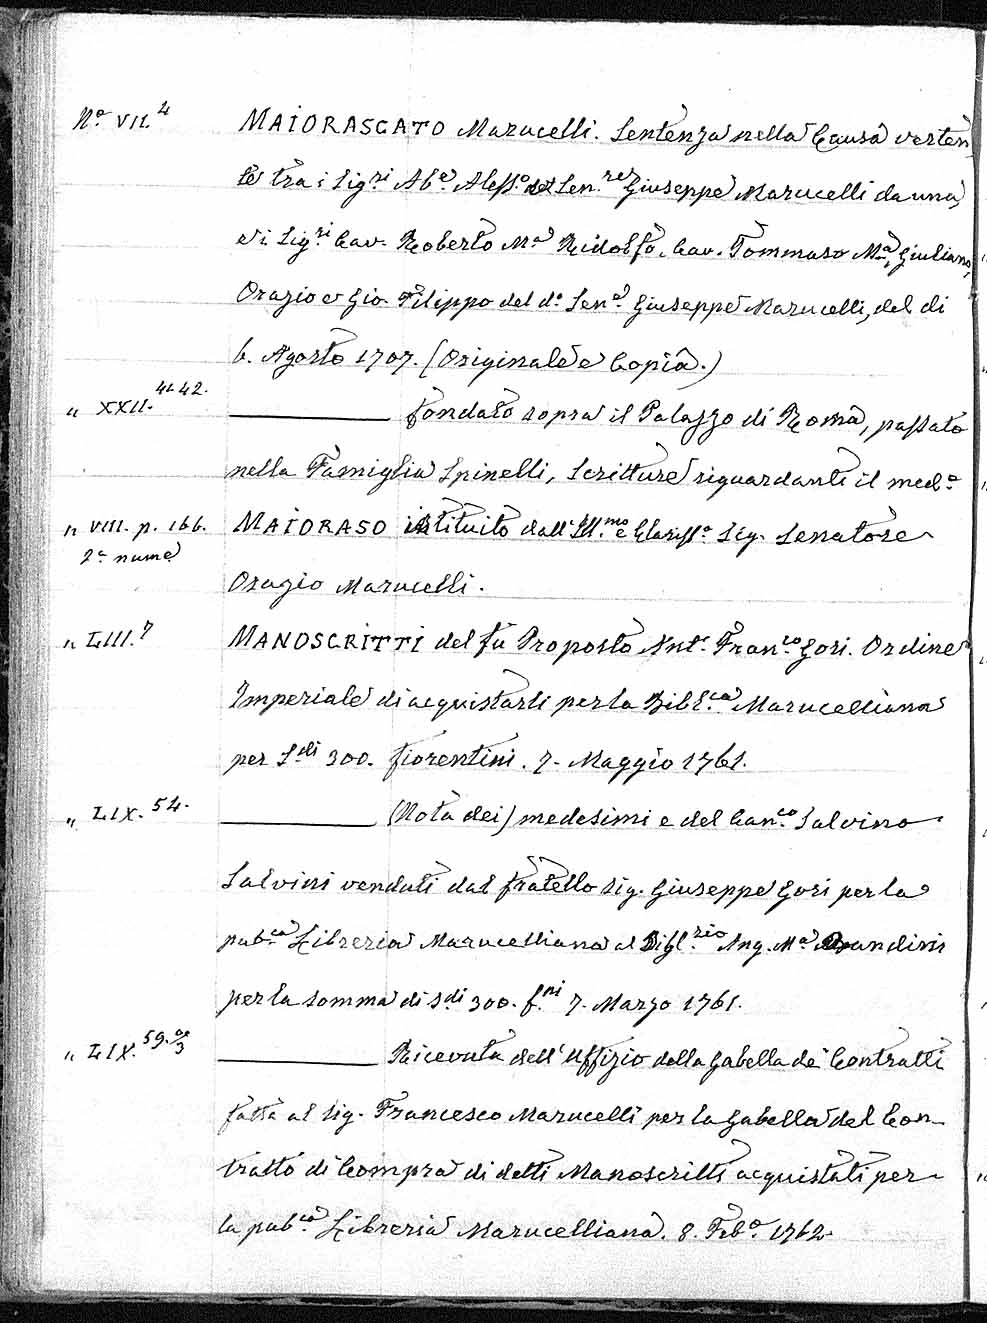 Nº VII.4 MAIORASCATO Marucelli. Sentenza nella Causa verten
te tra i Sig.ri Ab.e Aless.o Sen.re Giuseppe Marucelli da una,
e i Sig.ri Cav. Roberto M.a Ridolfo, Cav. Tommaso M.a, Giuliano,
Orazio e Gio. Filippo del d.o Sen.e Giuseppe Marucelli, del di
6. Agosto 1707. (Originale e Copia.)
" XXII. 41-42. ——— fondato sopra il Palazzo di Roma, passato
nella Famiglia Spinelli, Scritture riguardanti il med.o
" VIII. p. 166. MAIORASO istituito dall' Ill.mo e Clariss.o Sig. Senatore
2.a nume
Orazio Marucelli.
" LIII.7 MANOSCRITTI del fu Proposto Ant. Fran.co Gori. Ordine
Imperiale di acquistarli per la Bibl.ca Marucelliana
per S.di 300. fiorentini. 7. Maggio 1761.
" LIX. 54. ——— (Nota dei) medesimi e del Can.co Salvino
Salvini venduti dal fratello Sig. Giuseppe Gori per la
pub.ca Libreria Marucelliana al Bibl.rio Ang. M.a Bandini
per la somma di S.di 300. f.ni 7. Marzo 1761.
" LIX. 59. 3 ——— Ricevuta dell' Uffizio della Gabella de' Contratti
fatta al Sig. Francesco Marucelli per la Gabella del Con-
tratto di Compra di detti Manoscritti acquistati per
la pub.ca Libreria Marucelliana. 8. Feb.o 1762.